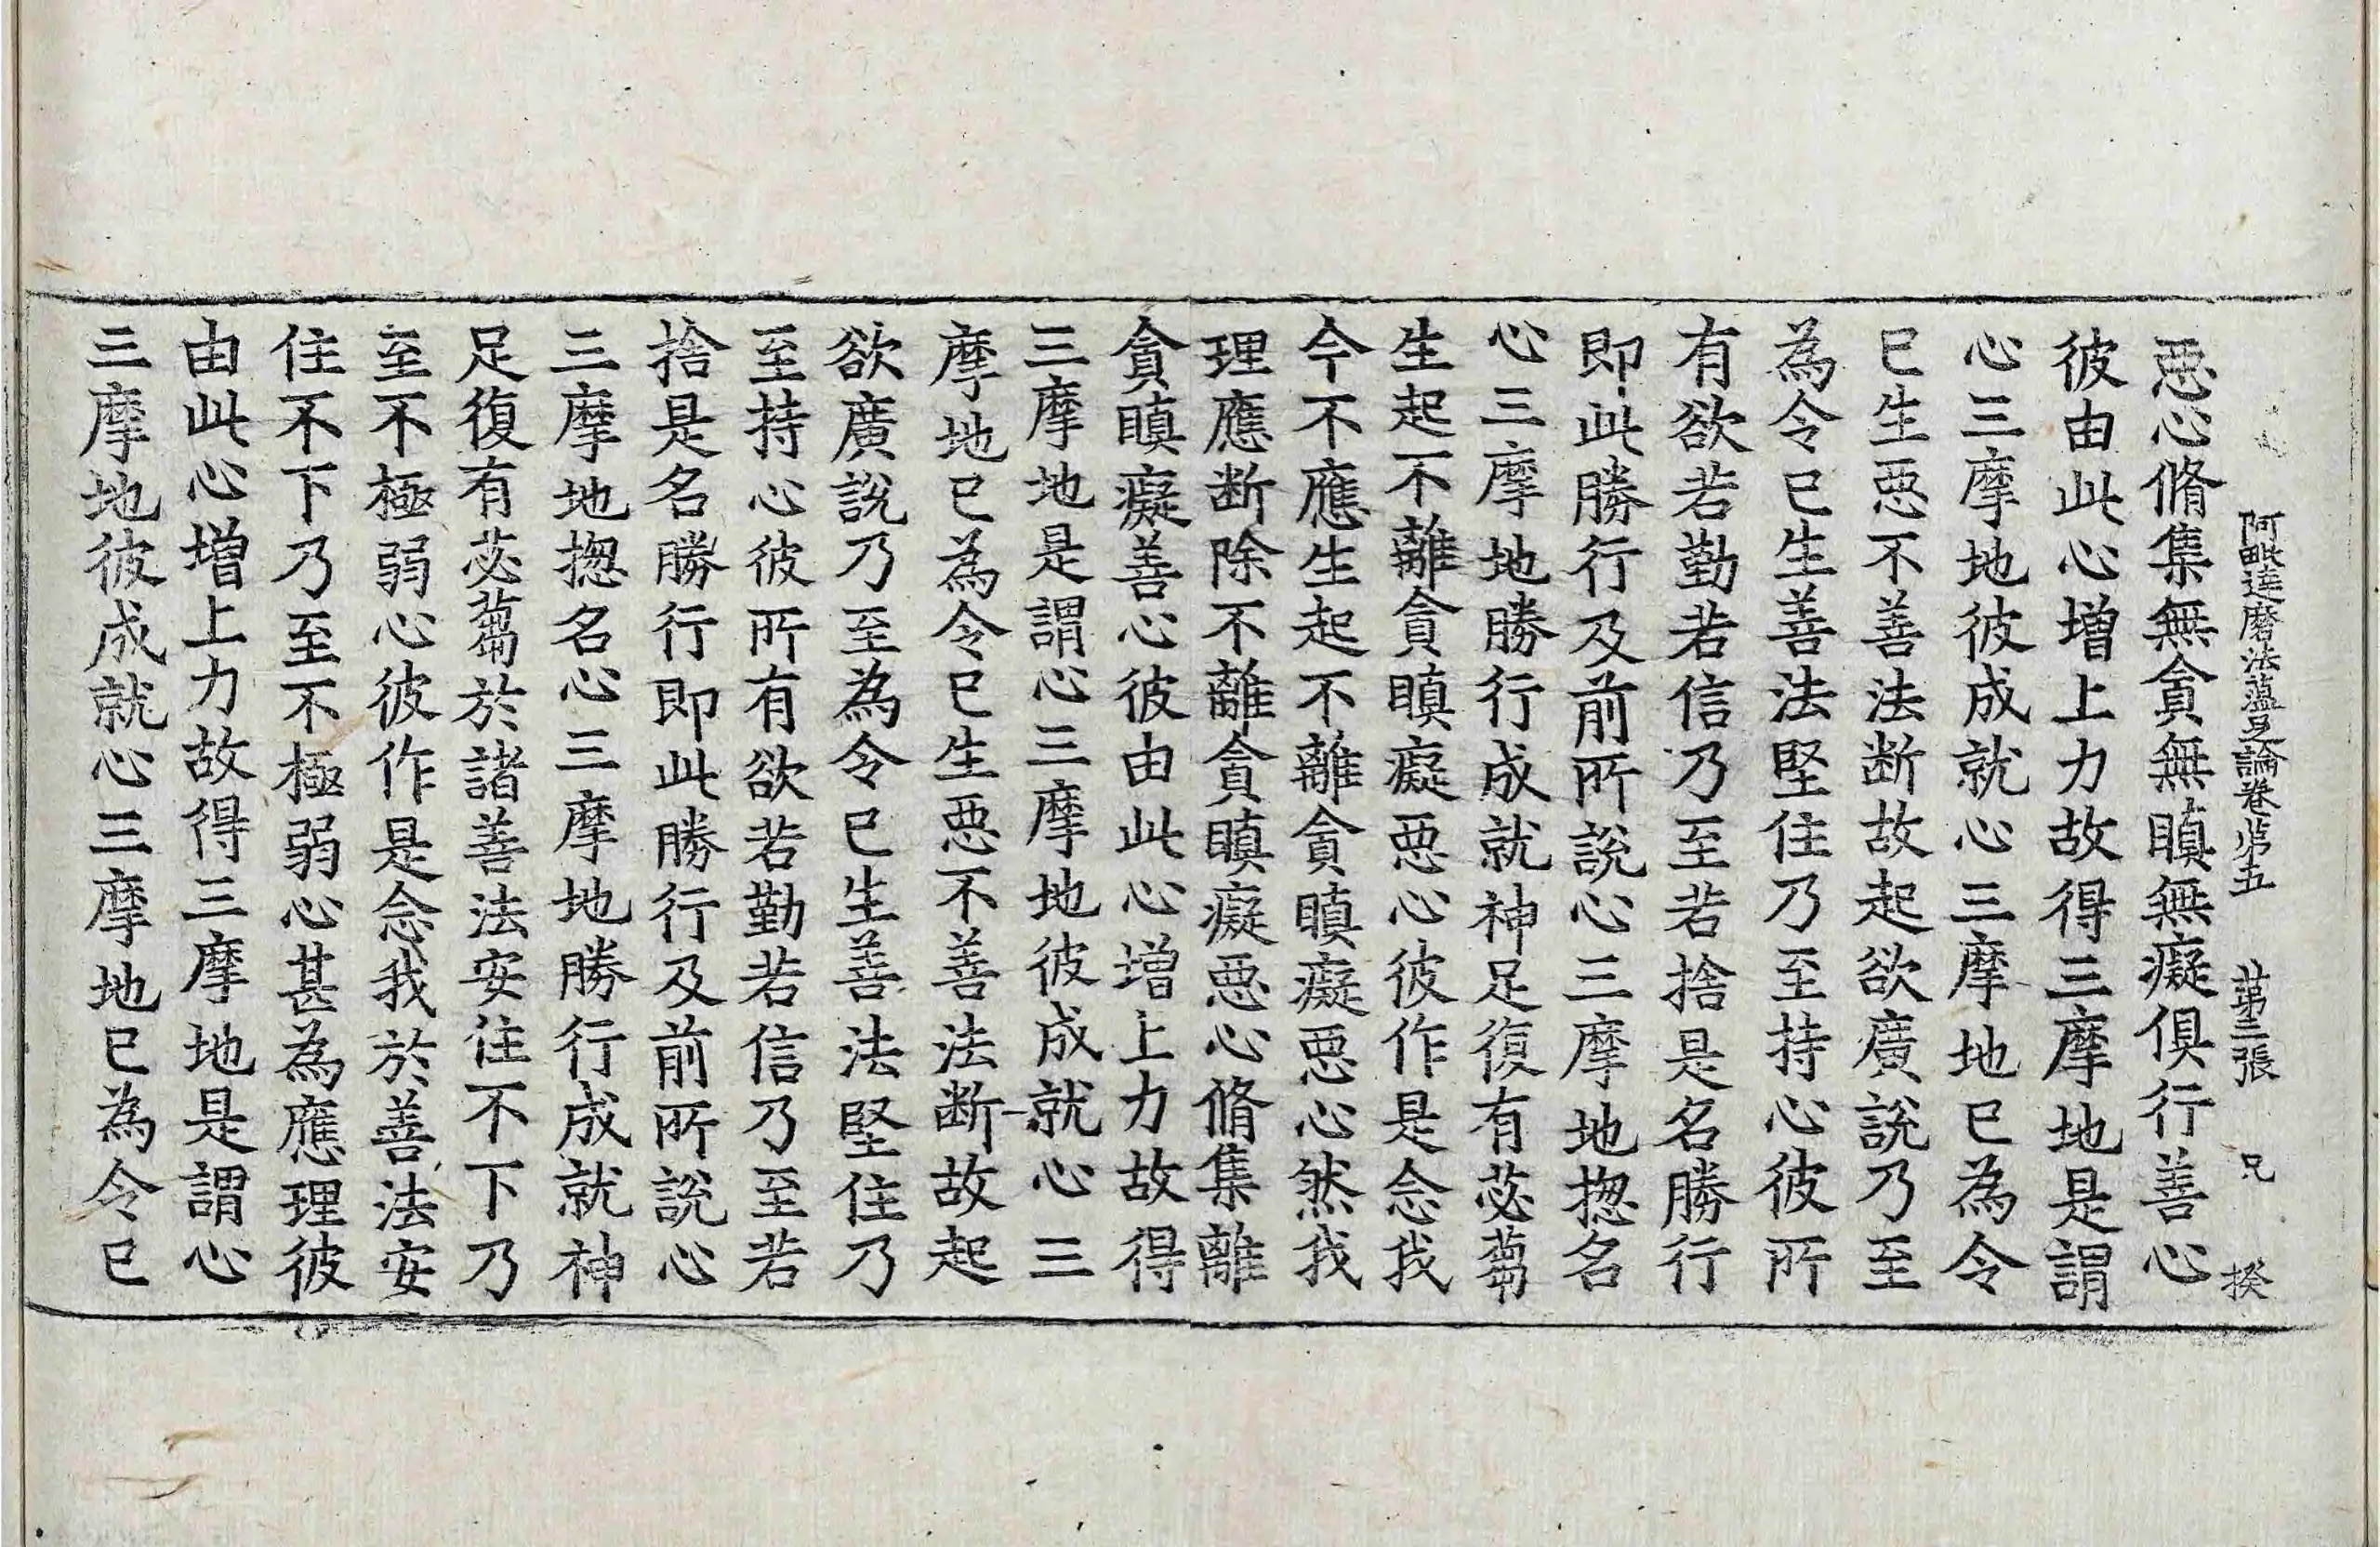 阿毗達磨法蘊足論卷第五 第二張 兄 揆
惡心脩集無貪無瞋無癡俱行善心
彼由此心增上力故得三摩地是謂
心三摩地彼成就心三摩地已為令
已生惡不善法断故起欲廣說乃至
為令已生善法堅住乃至持心彼所
有欲若勤若信乃至若捨是名勝行
即此勝行及前所說心三摩地揔名
心三摩地勝行成就神足復有苾蒭
生起不離貪瞋癡惡心彼作是念我
今不應生起不離貪瞋癡惡心然我
理應断除不離貪瞋癡惡心脩集離
貪瞋癡善心彼由此心增上力故得
三摩地是謂心三摩地彼成就心三
摩地已為令已生惡不善法断故起
欲廣說乃至為令已生善法堅住乃
至持心彼所有欲若勤若信乃至若
捨是名勝行即此勝行及前所說心
三摩地揔名心三摩地勝行成就神
足復有苾蒭於諸善法安住不下乃
至不極弱心彼作是念我於善法安
住不下乃至不極弱心甚為應理彼
由此心增上力故得三摩地是謂心
三摩地彼成就心三摩地已為令已